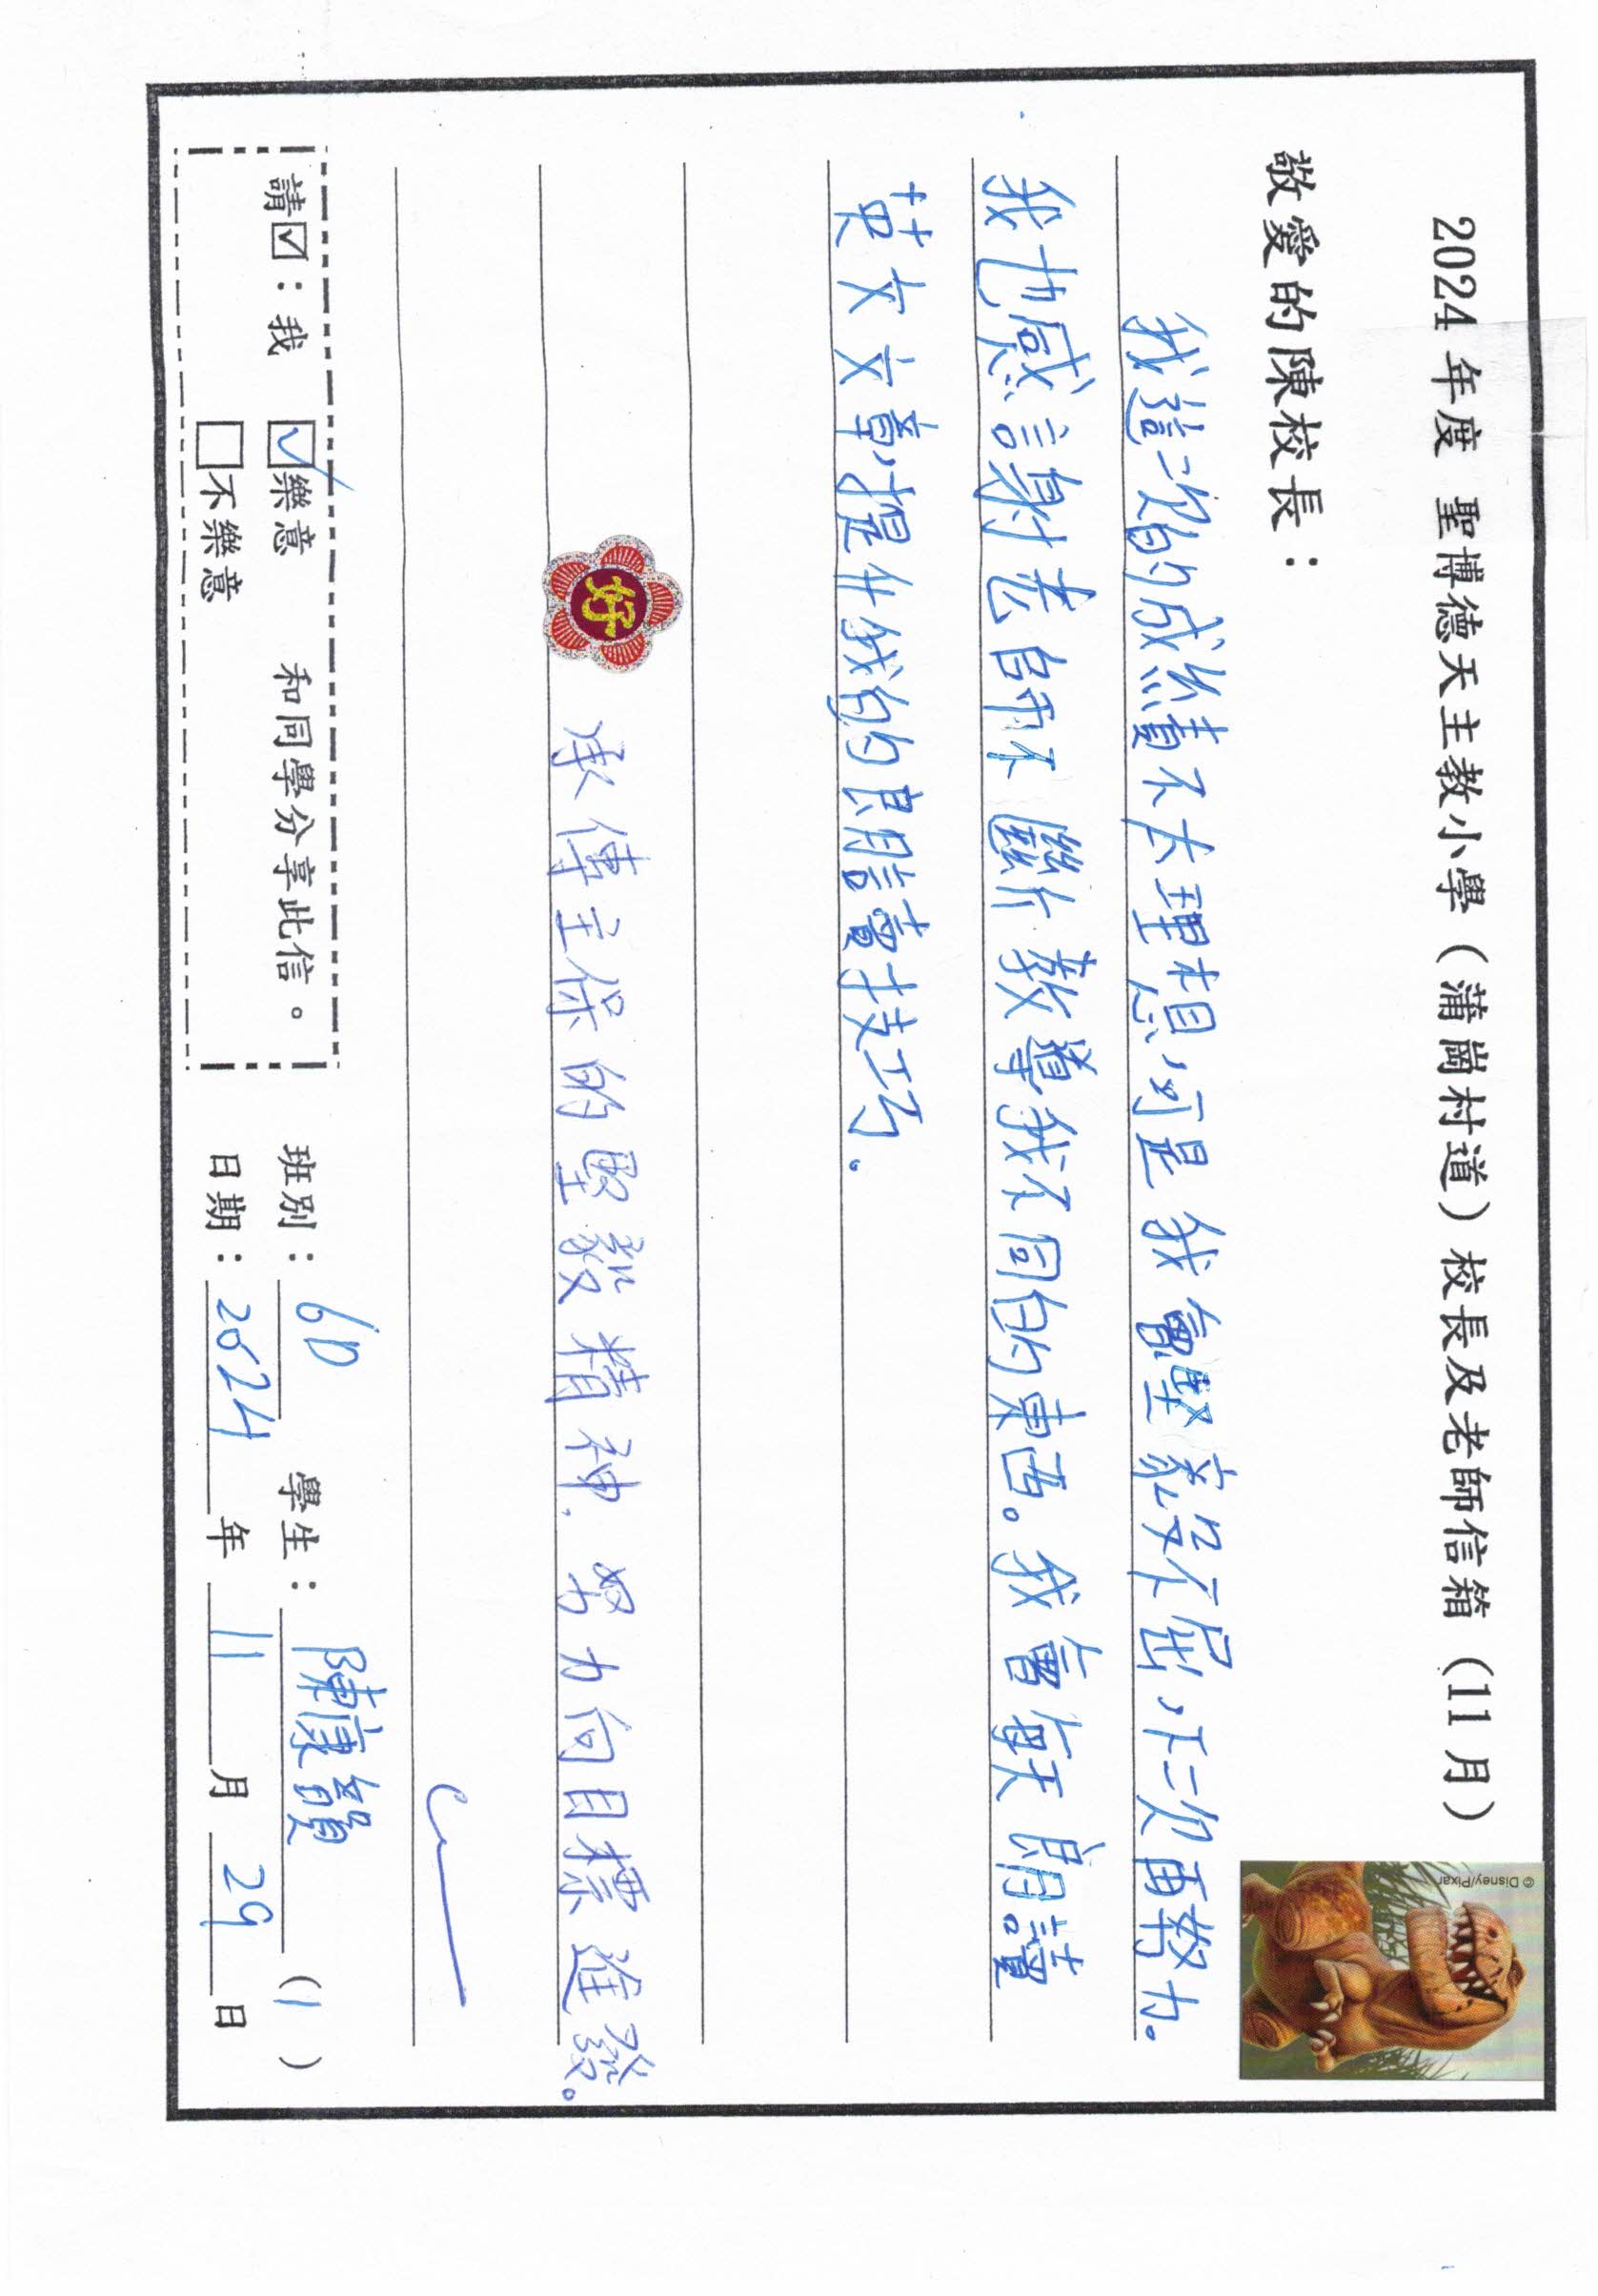 2024 年度 聖博德天主教小學（蒲崗村道）校長及老師信箱（11 月）
© Disney/Pixar
敬愛的陳校長：
我這次的成績不太理想，可是我會堅毅不屈，下次再努力。
我也感謝老師不斷教導我不同的東西。我會每天朗讀
英文文章，提升我的朗讀技巧。
好
承傳主保的堅毅精神，努力向目標進發。
請☑：我 ☑樂意 和同學分享此信。
☐不樂意
班別：6D 學生：陳康 (1)
日期：2024 年 11 月 29 日